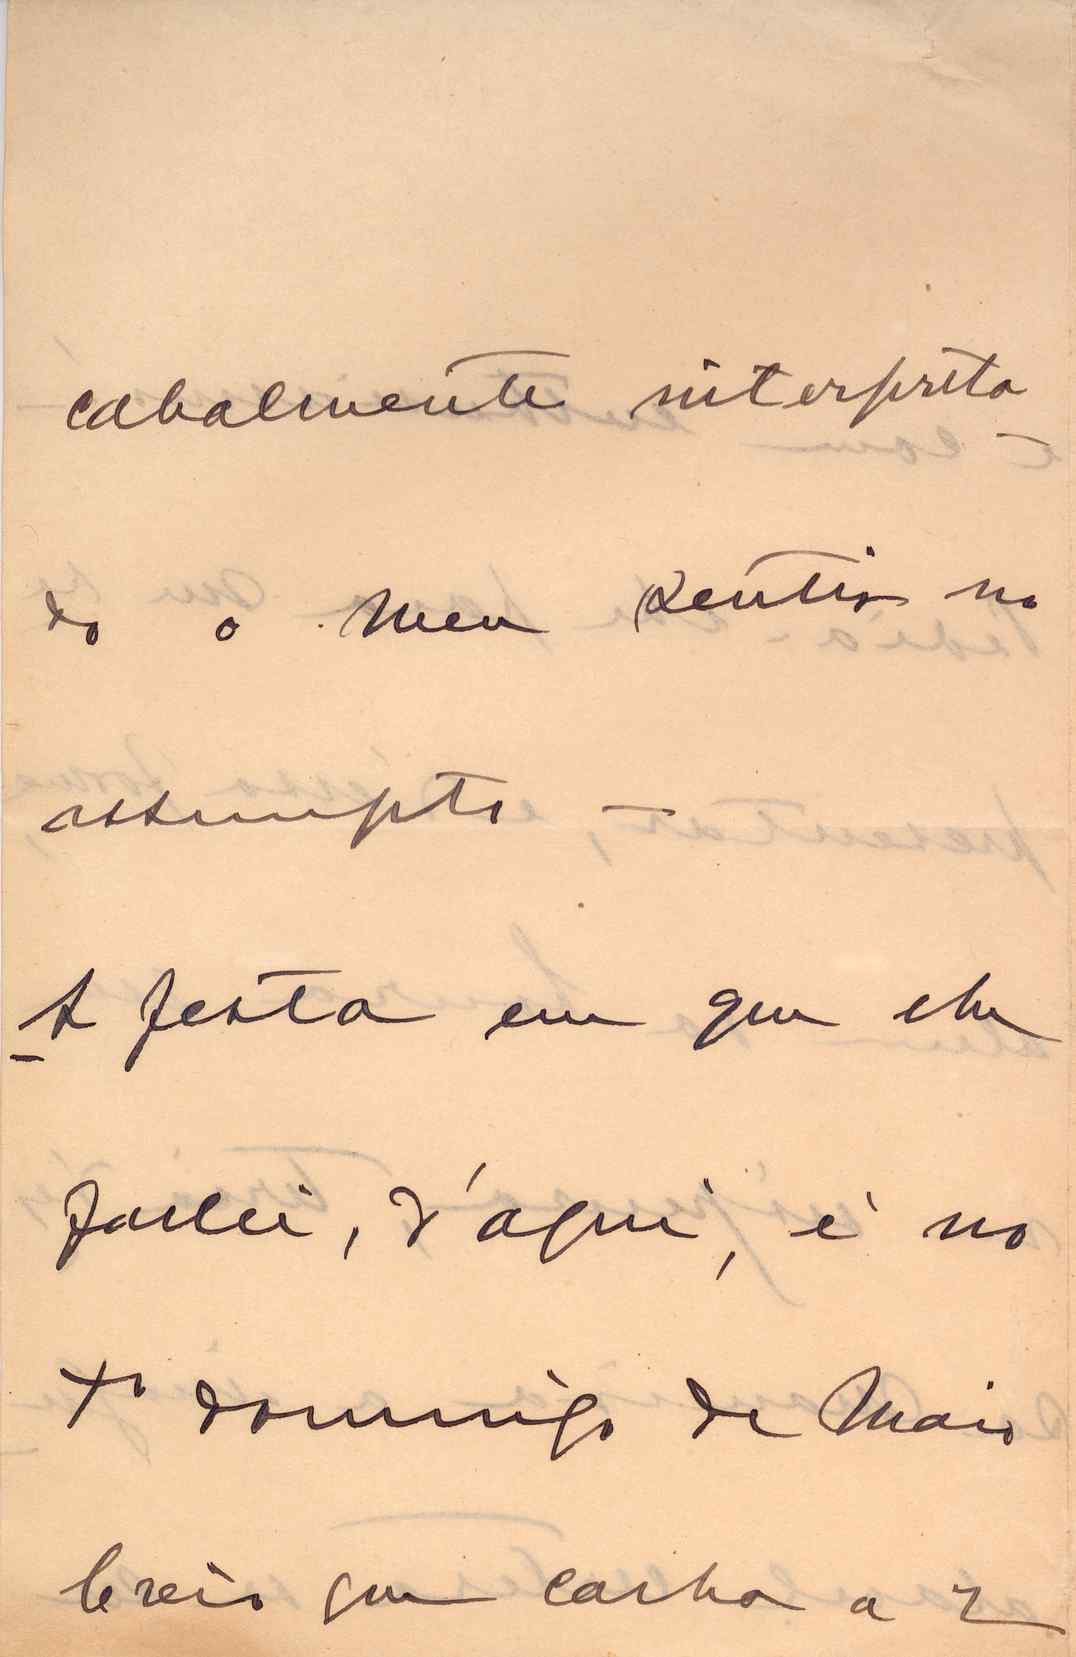 cabalmente interpreta
do o meu sentir no
assumpto —
A festa em que lhe
fallei, d'aqui, é no
1º domingo de Maio
Creio que calha a 2